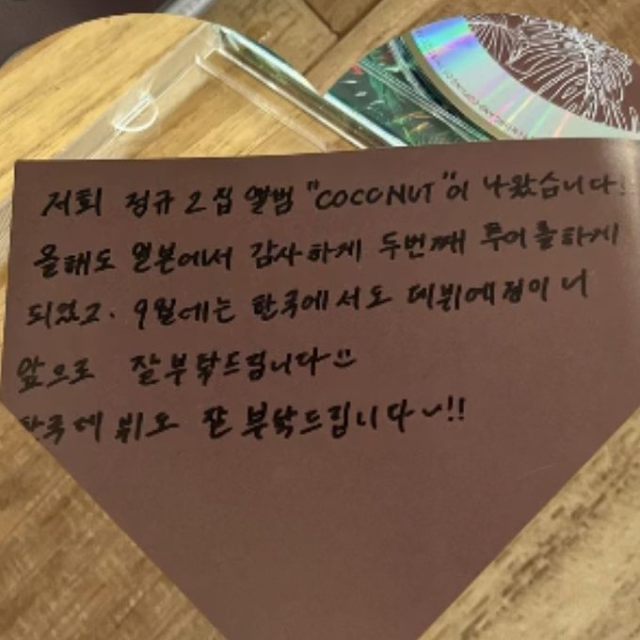 저희 정규 2집 앨범 "COCONUT"이 나왔습니다!
올해도 일본에서 감사하게 두번째 투어를하게
되었고, 9월에는 한국에서도 데뷔예정이니
앞으로 잘부탁드립니다
한국데뷔도 잘 부탁드립니다~!!